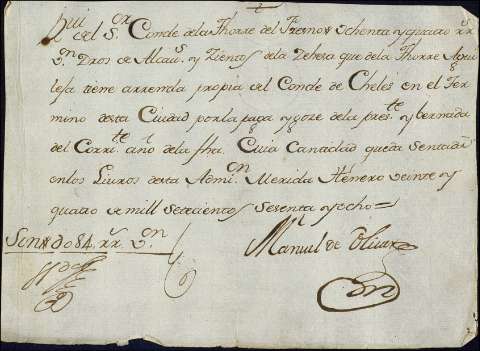 del S.or Conde dela Thorre del Fresno ochenta y quatro rr.s
v.n Dros de Alcav.s y Zientos de la Dehesa que dela Thorre
lesa tiene arrendada propia del Conde de Cheles en el Ter
mino desta Ciudad por la paga y goze dela pres.te ybernada
del Corr.te año de la fha. Cuia Cantidad queda Sentada
enlos Livros desta Admi.on Merida Henero veinte y
quatro de mill Setecientos Sesenta y ocho =
Son 84 rr.s v.n
Manuel de Olivar